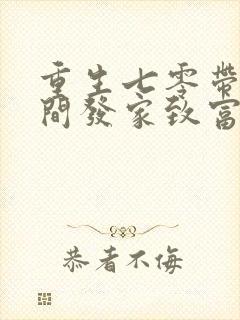 重生七零帶
間發家致富
恭者不侮